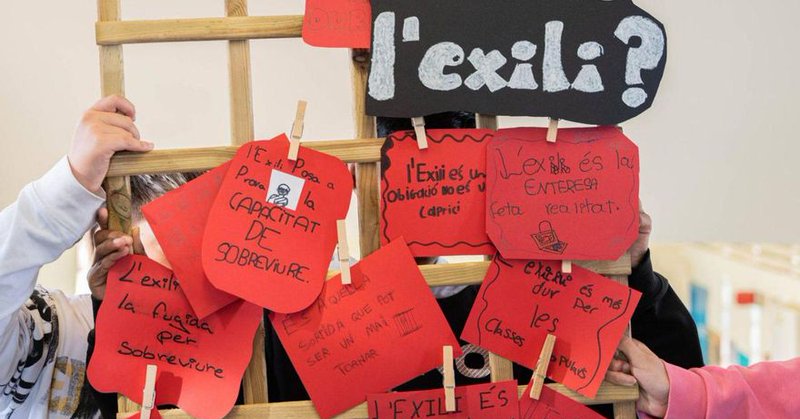 l'exili?
l'Exili Posa a
Prova la
CAPACITAT
DE
SOBREVIURE.
l'Exili es un
Obligació no es un
Caprici
L'exili és la
ENTERESA
feta realitat.
L'exili és
la fugida
per
Sobreviure
AQUELLA
SORTIDA QUE POT
SER UN MAI
TORNAR
exili és més
dur per
les
Classes
populars
L'EXILI ÉS